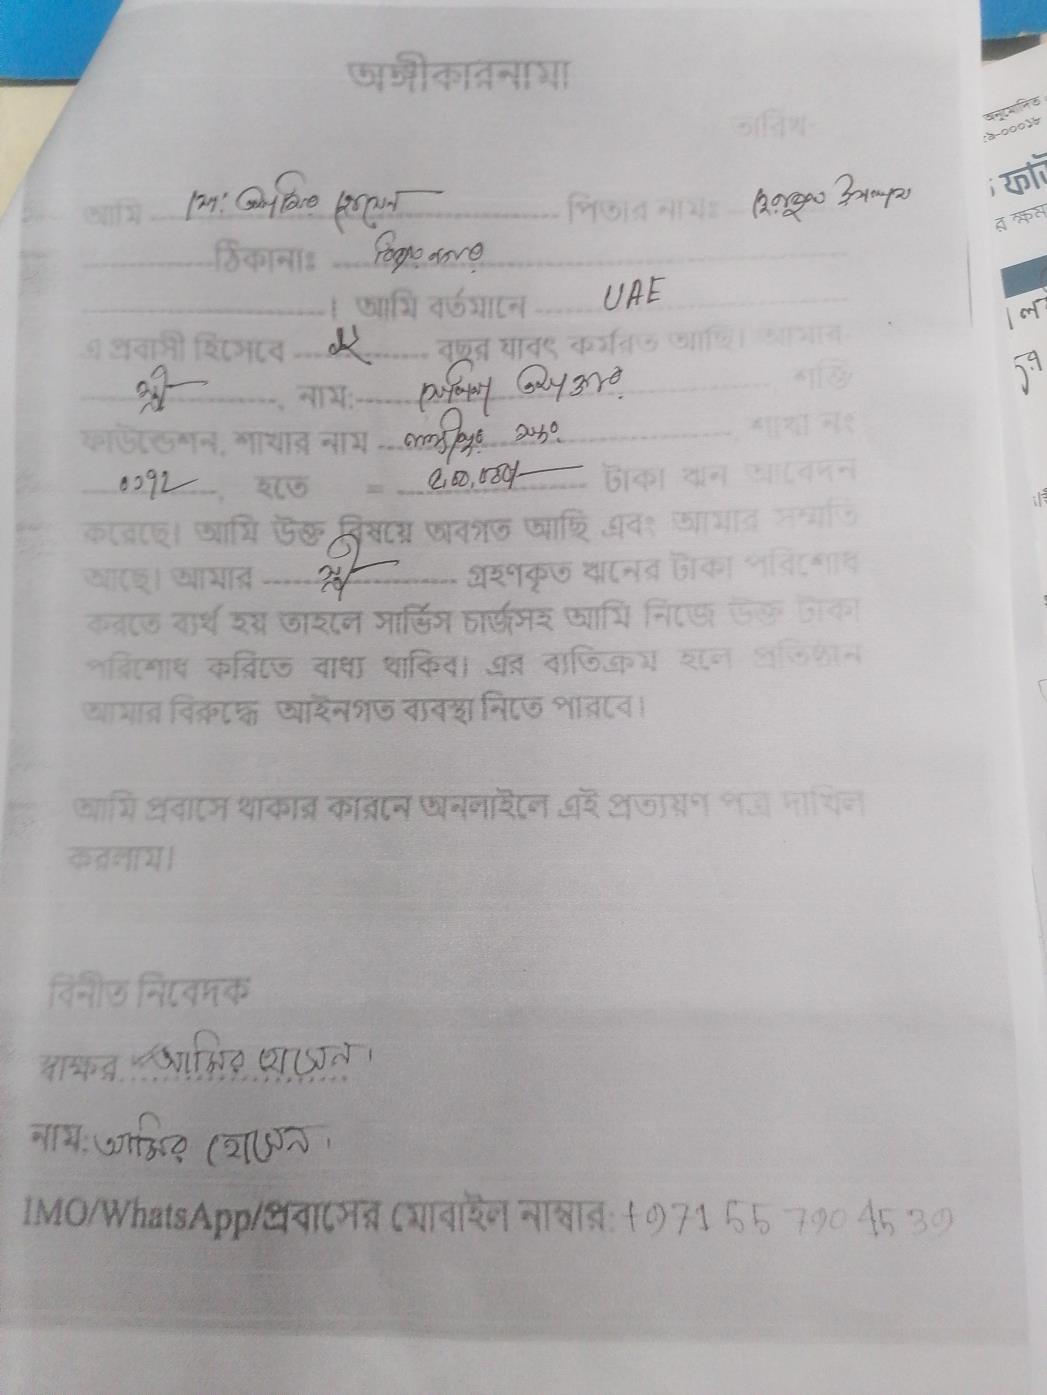 অঙ্গীকারনামা
তারিখ-
আমি মো: আমির হোসেন পিতার নামঃ নুরুল ইসলাম
ঠিকানাঃ
। আমি বর্তমানে UAE
এ প্রবাসী হিসেবে বছর যাবৎ কর্মরত আছি। আমার
স্ত্রী, নাম: আক্তার, শক্তি
ফাউন্ডেশন, শাখার নাম লক্ষ্মীপুর সদর, শাখা নং
০১৭২, হতে = টাকা ঋন আবেদন
করেছে। আমি উক্ত বিষয়ে অবগত আছি এবং আমার সম্মতি
আছে। আমার স্ত্রী গ্রহণকৃত ঋনের টাকা পরিশোধ
করতে ব্যর্থ হয় তাহলে সার্ভিস চার্জসহ আমি নিজে উক্ত টাকা
পরিশোধ করিতে বাধ্য থাকিব। এর ব্যতিক্রম হলে প্রতিষ্ঠান
আমার বিরুদ্ধে আইনগত ব্যবস্থা নিতে পারবে।
আমি প্রবাসে থাকার কারনে অনলাইলে এই প্রত্যয়ণ পত্র দাখিল
করলাম।
বিনীত নিবেদক
স্বাক্ষর আমির হোসেন।
নাম: আমির হোসেন।
IMO/WhatsApp/প্রবাসের মোবাইল নাম্বার: +971 55 790 4539
অনুমোদিত